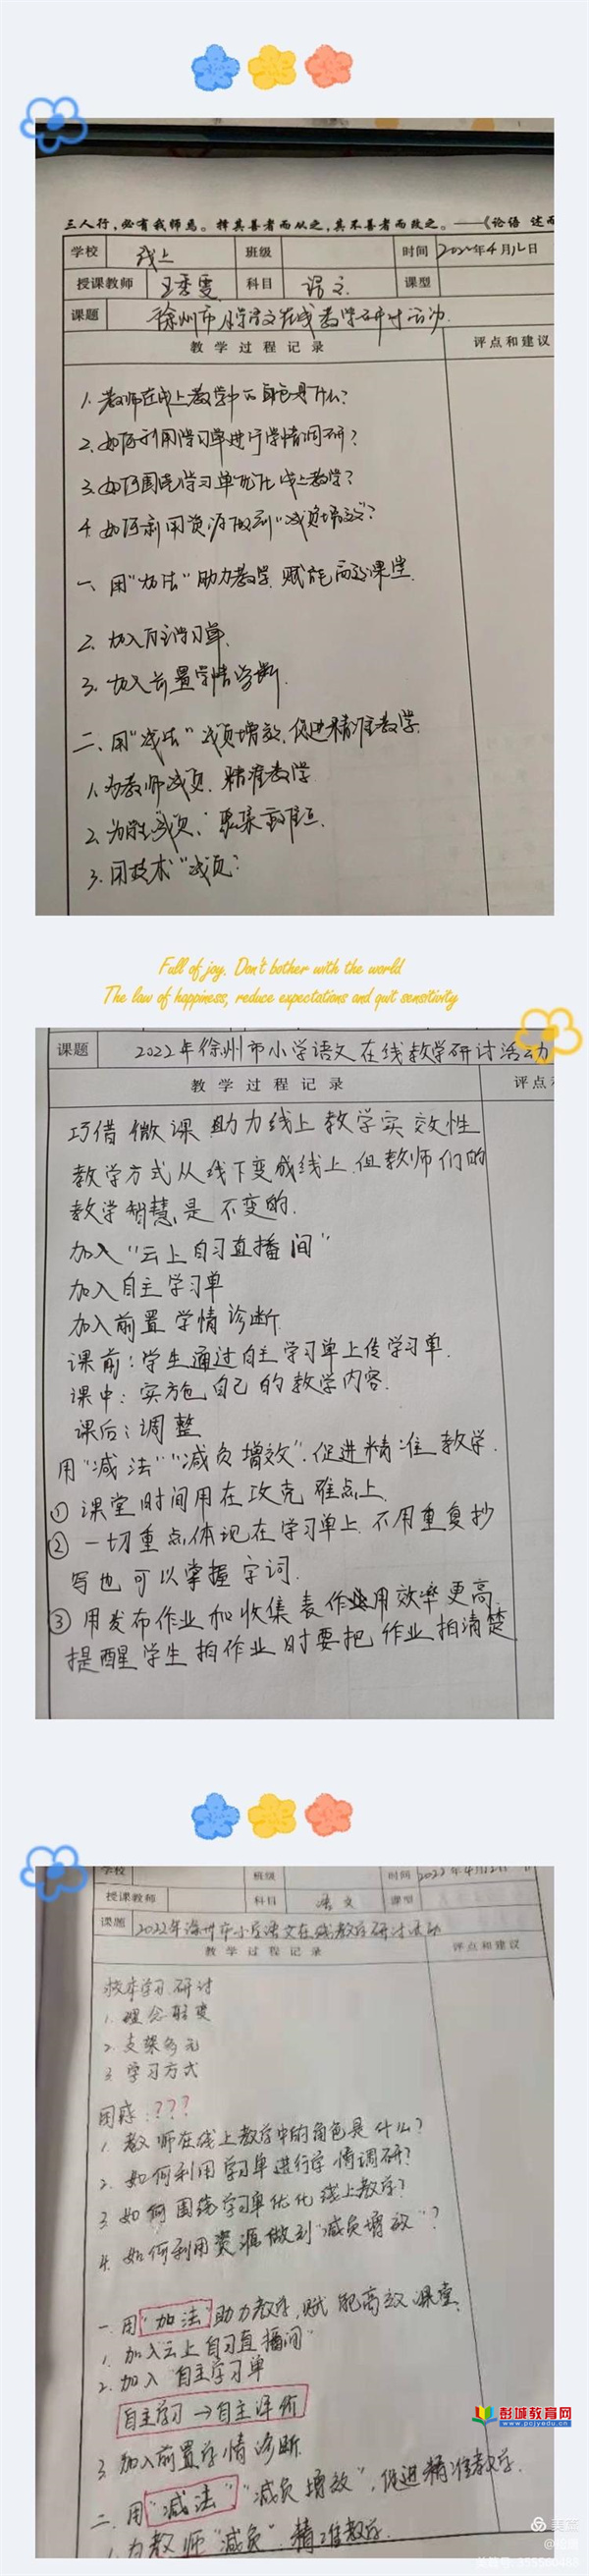 三人行，必有我师焉。择其善者而从之，其不善者而改之。——《论语 述而
学校 线上 班级 时间 2022年4月12日
授课教师 王秀雯 科目 语文 课型
课题 徐州市小学语文在线教学研讨活动
教学过程记录 评点和建议
1. 教师在线上教学中的角色是什么？
2. 如何利用学习单进行学情调研？
3. 如何围绕学习单优化线上教学？
4. 如何利用资源做到“减负增效”？
一、用“加法”助力教学，赋能高效课堂.
2. 加入自主学习单.
3. 加入前置学情诊断.
二、用“减法”减负增效，促进精准教学.
1. 为教师减负，精准教学
2. 减负，聚焦重难点.
3. 用技术“减负”
Full of joy. Don't bother with the world
The law of happiness, reduce expectations and quit sensitivity
课题 2022年徐州市小学语文在线教学研讨活动
教学过程记录 评点
巧借微课助力线上教学实效性
教学方式从线下变成线上.但教师们的
教学智慧是不变的.
加入“云上自习直播间”
加入自主学习单
加入前置学情诊断
课前：学生通过自主学习单上传学习单.
课中：实施自己的教学内容.
课后：调整
用“减法”“减负增效”.促进精准教学.
① 课堂时间用在攻克难点上.
② 一切重点体现在学习单上.不用重复抄
写也可以掌握字词.
③ 用发布作业和收集表作业用效率更高.
提醒学生拍作业时要把作业拍清楚
学校 班级 时间 2022年4月12日
授课教师 科目 语文 课型
课题 2022年徐州市小学语文在线教学研讨活动
教学过程记录 评点和建议
校本学习研讨
1. 理念转变
2. 支架多元
3. 学习方式
困惑：？？？
1. 教师在线上教学中的角色是什么？
2. 如何利用学习单进行学情调研？
3. 如何围绕学习单优化线上教学？
4. 如何利用资源做到“减负增效”？
一. 用“加法”助力教学，赋能高效课堂.
1. 加入“云上自习直播间”
2. 加入自主学习单
自主学习→自主评价
3. 加入前置学情诊断
二. 用“减法”“减负增效”，促进精准教学.
1. 为教师“减负”，精准教学.
彭城教育网
www.pcjyedu.cn
美篇